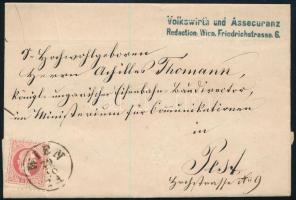 Volkswirth und Assecuranz
Redaction, Wien, Friedrichstrasse 6.
Sr Hochwohlgeboren
Herrn Achilles Thomann,
königl. ungarischer Eisenbahn-Baudirector,
im Ministerium für Communikationen
in
Pest
Hochstrasse No 9
WIEN